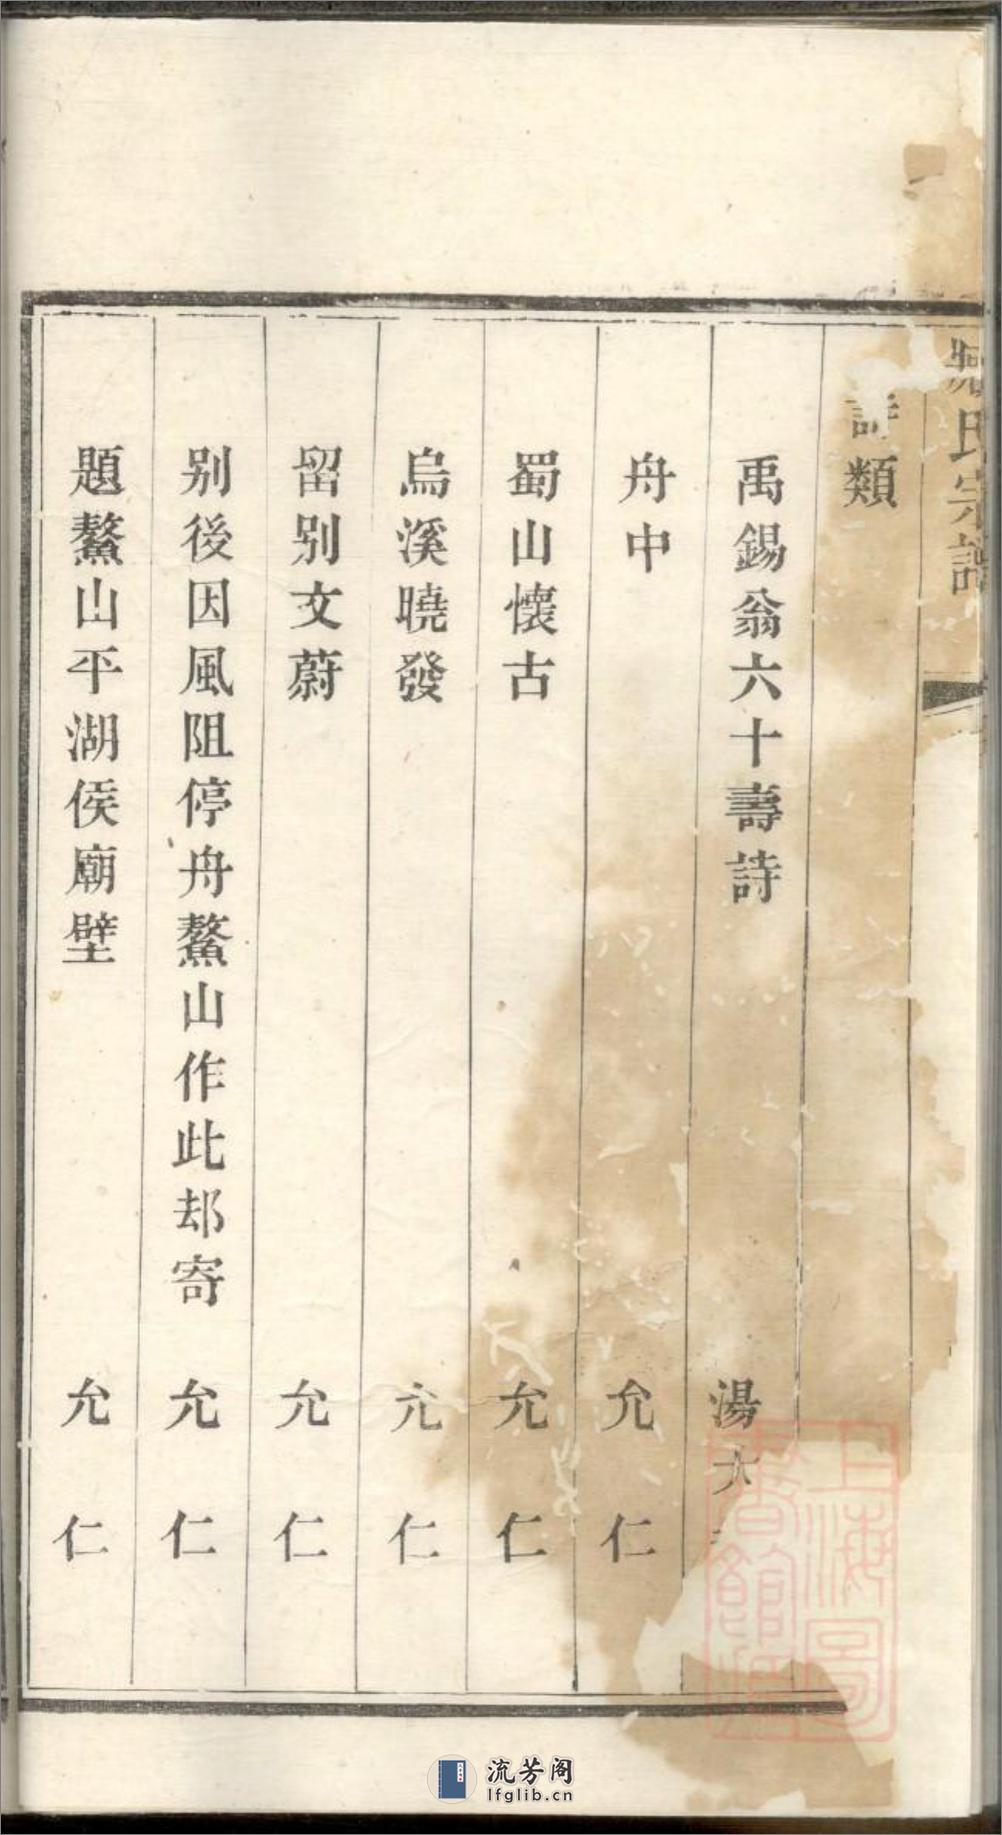 氏宗譜
詩類
禹錫翁六十壽詩 湯大
舟中 允仁
蜀山懷古 允仁
烏溪曉發 允仁
留别文蔚 允仁
别後因風阻停舟鰲山作此却寄 允仁
題鰲山平湖侯廟壁 允仁
上海圖書館藏
流芳阁
lfglib.cn